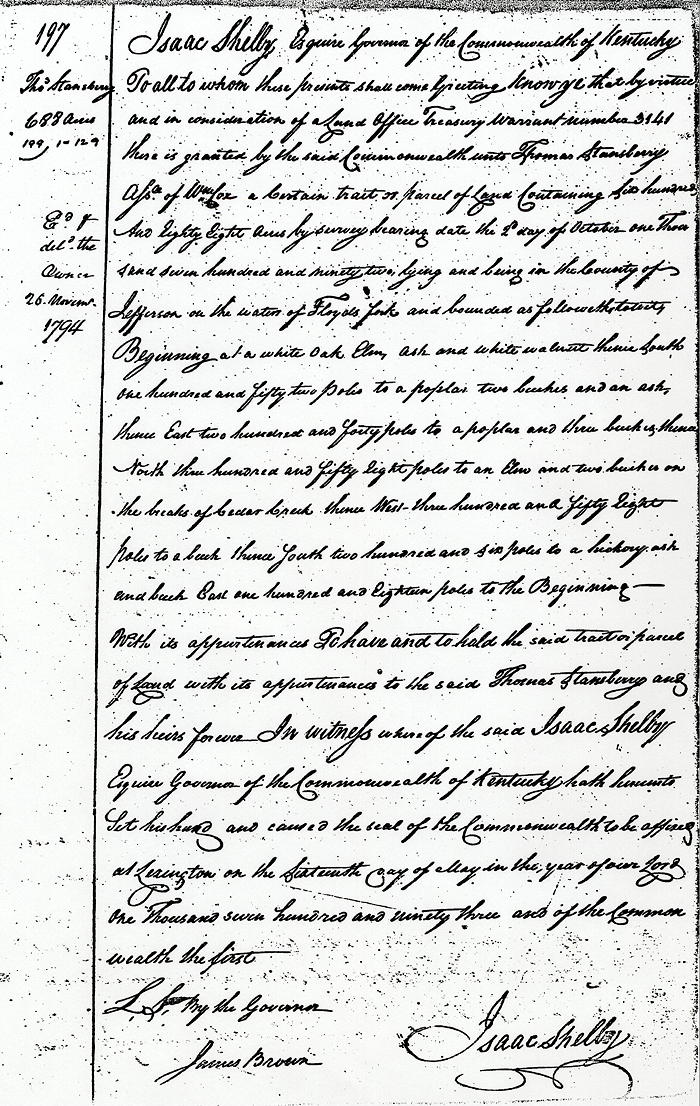 197
Isaac Shelby, Esquire Governor of the Commonwealth of Kentucky
Thos Stansberry
To all to whom these presents shall come Greeting Know ye that by virtue
688 Acres
and in consideration of a Land Office Treasury Warrant number 3141
there is granted by the said Commonwealth unto Thomas Stansberry
Assee of Wm Cox a Certain tract or parcel of Land Containing Six hundred
Ed &
And Eighty Eight Acres by survey bearing date the 2d day of October one Thou
deld the
Owner
sand seven hundred and ninety two, lying and being in the County of
26 Novemr
Jefferson on the waters of Floyds fork and bounded as followeth, towit,
1794
Beginning at a white Oak Elm, ash and white walnut thence South
one hundred and fifty two poles to a poplar two beeches and an ash,
thence East two hundred and forty poles to a poplar and three beeches, thence
North three hundred and fifty Eight poles to an Elm and two beeches on
the breaks of Cedar Creek thence West three hundred and fifty Eight
poles to a beech thence South two hundred and six poles to a hickory ash
and beech East one hundred and Eighteen poles to the Beginning
With its appurtenances To have and to hold the said tract or parcel
of Land with its appurtenances to the said Thomas Stansberry and
his heirs forever In witness whereof the said Isaac Shelby
Esquire Governor of the Commonwealth of Kentucky hath hereunto
Set his hand and caused the seal of the Commonwealth to be affixed
at Lexington on the Sixteenth day of May in the year of our Lord
one Thousand seven hundred and ninety three and of the Common
wealth the first
L.S. By the Governor
Isaac Shelby
James Brown